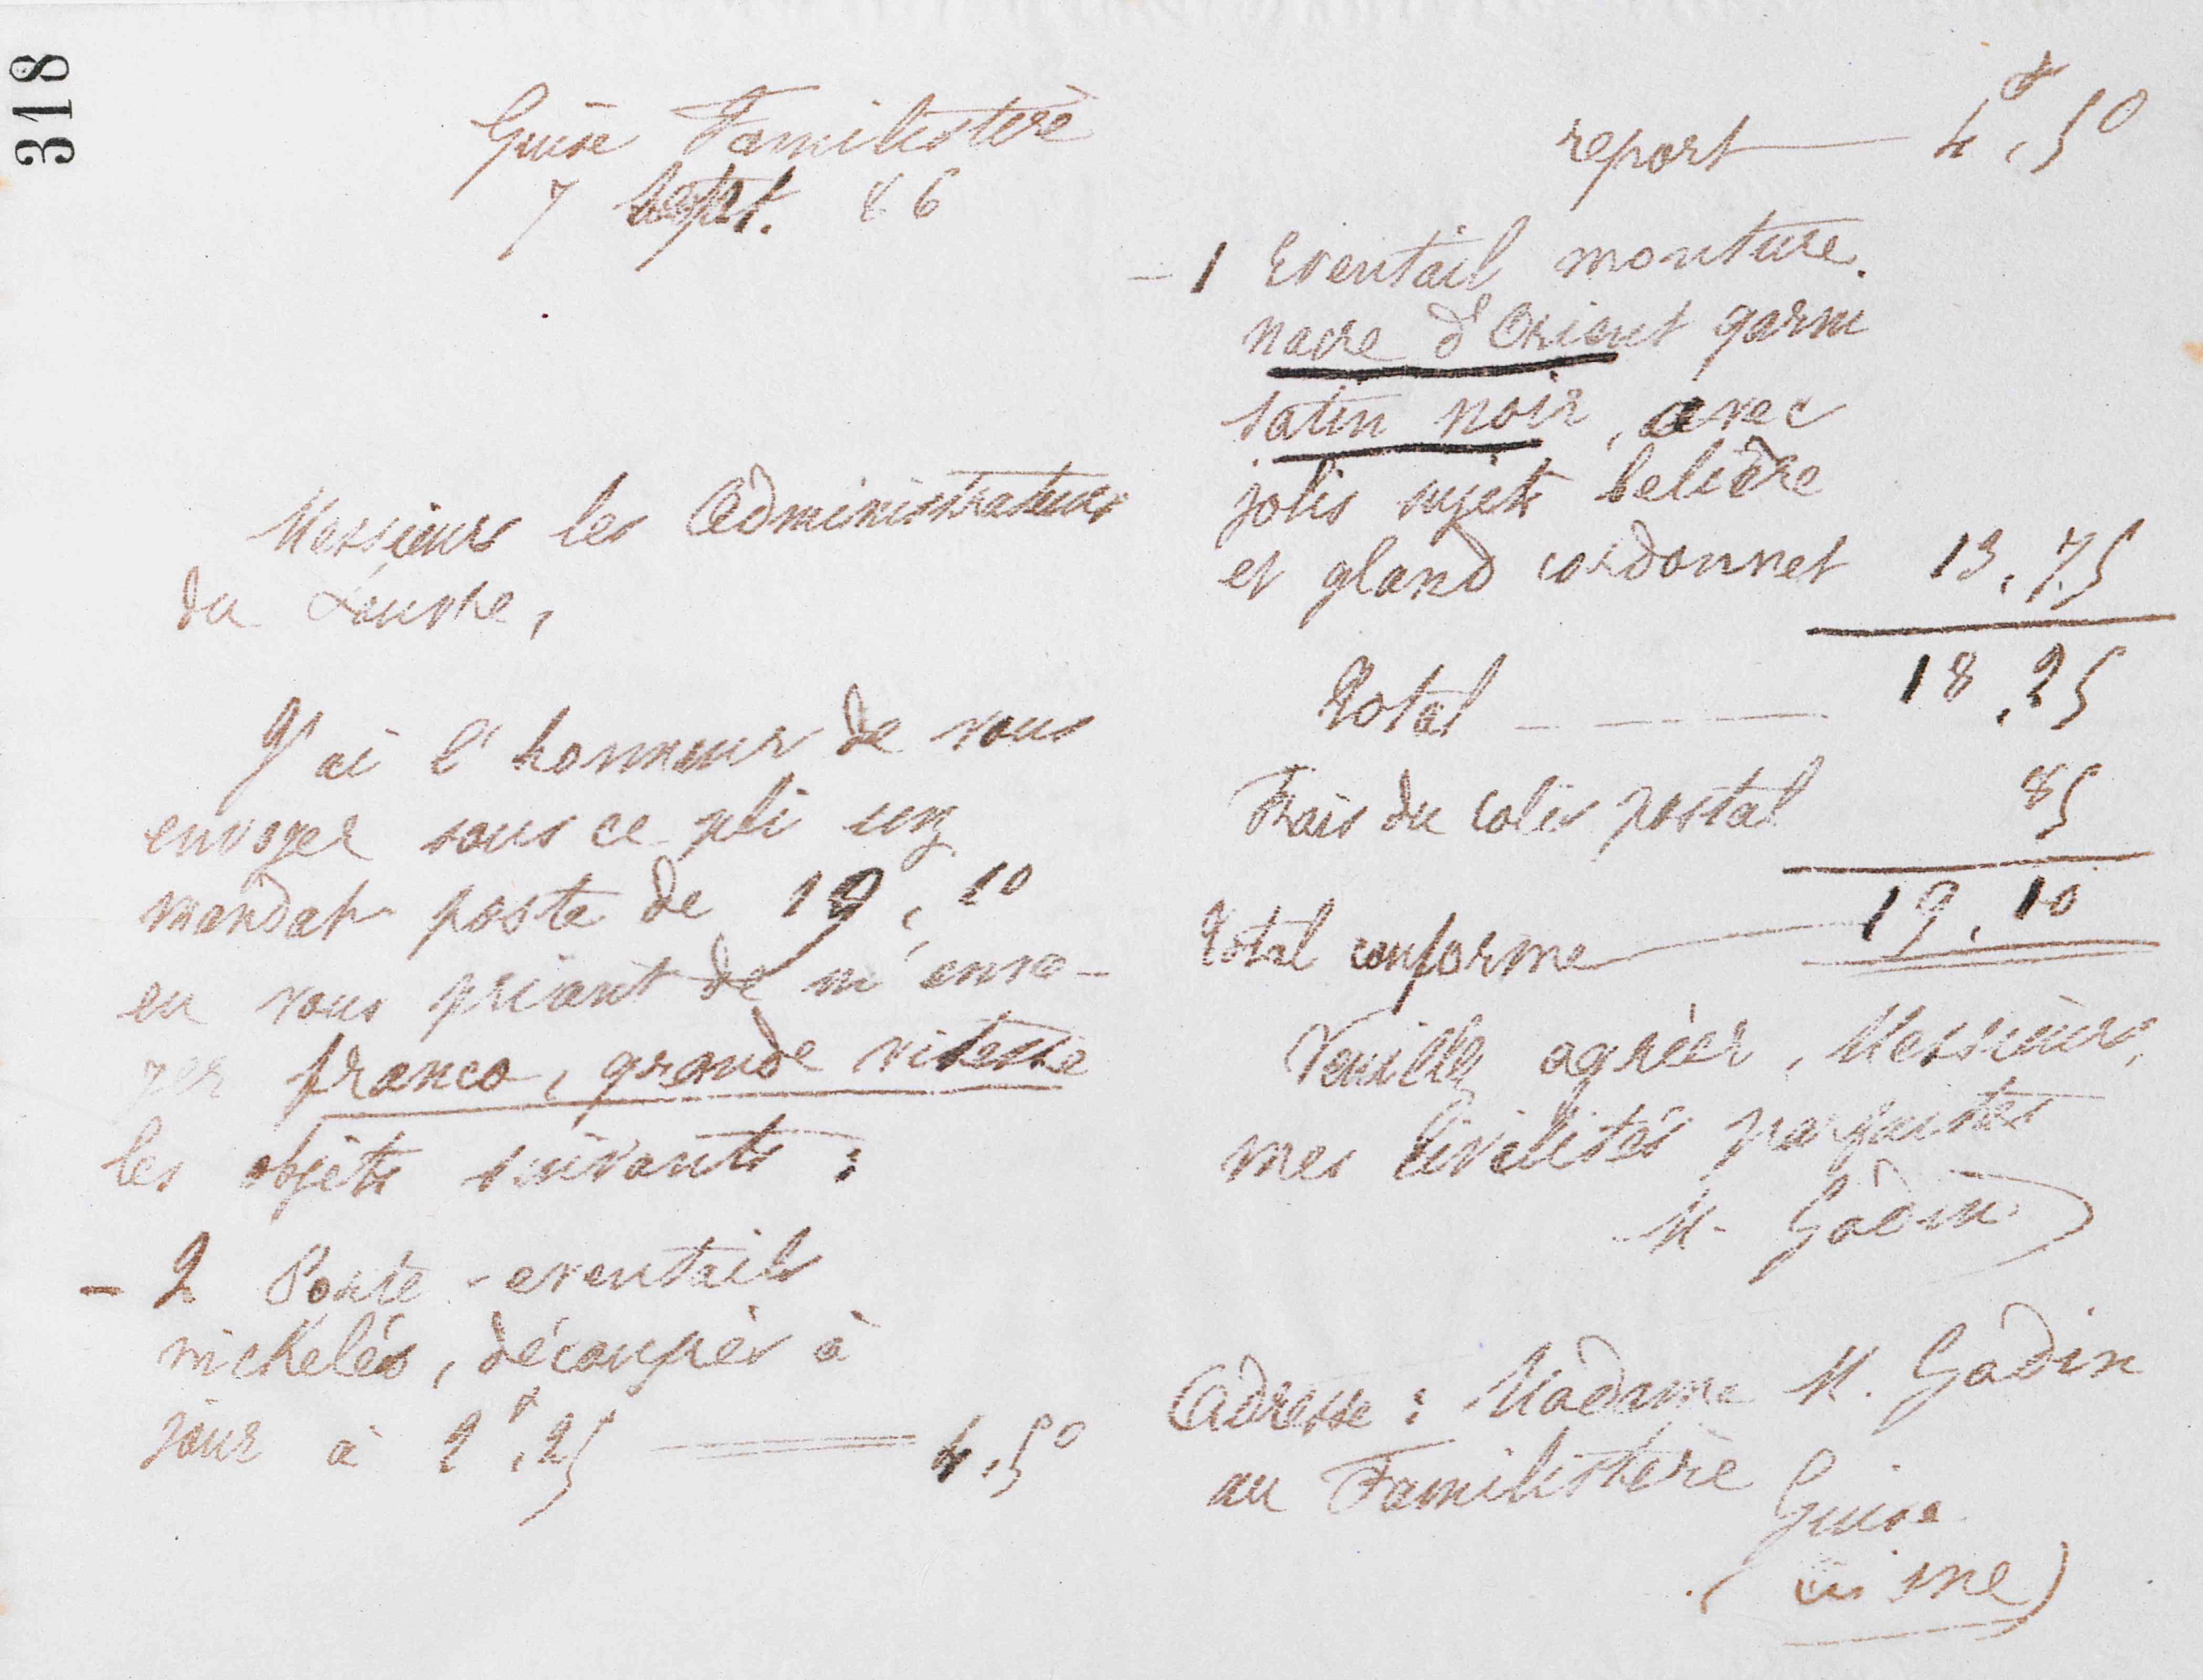 318
Guise Familistère
7 Sept. 86
Messieurs les Administrateurs
du Louvre,
J'ai l'honneur de vous
envoyer sous ce pli un
mandat poste de 19f,10
en vous priant de m'envo-
yer franco, grande vitesse
les objets suivants :
- 2 Porte-eventails
nickelés, découpés à
jour à 2f,25 4,50
report 4f,50
- 1 Eventail monture
nacre d'Orient garni
satin noir, avec
jolis sujets belière
et gland cordonnet 13,75
Total 18,25
Frais du colis postal 85
Total conforme 19,10
Veuillez agréer, Messieurs,
mes civilités parfaites
M. Godin
Adresse : Madame M. Godin
au Familistère
Guise
(Aisne)